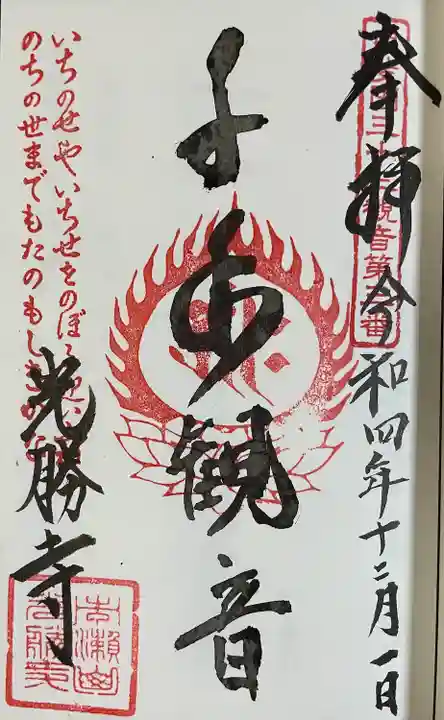 奉拝 令和四年十二月一日
観音第 番
千手観音
いちのせやいちせをのぼ
のちの世までもたのもし
光勝寺